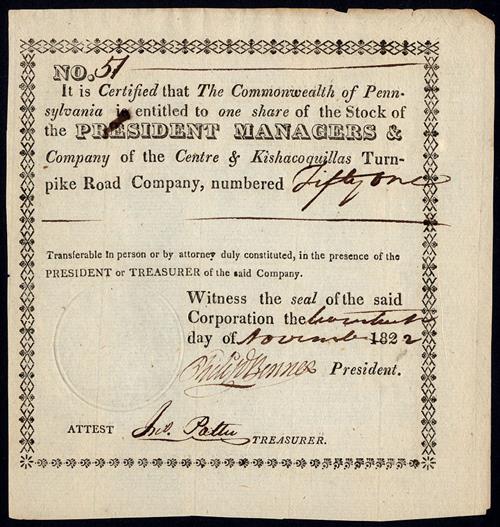 NO. 51
It is Certified that The Commonwealth of Penn-
sylvania is entitled to one share of the Stock of
the PRESIDENT MANAGERS &
Company of the Centre & Kishacoquillas Turn-
pike Road Company, numbered Fifty one
Transferable in person or by attorney duly constituted, in the presence of the
PRESIDENT or TREASURER of the said Company.
Witness the seal of the said
Corporation the
day of November 1822
President.
ATTEST Jno. Patton
TREASURER.